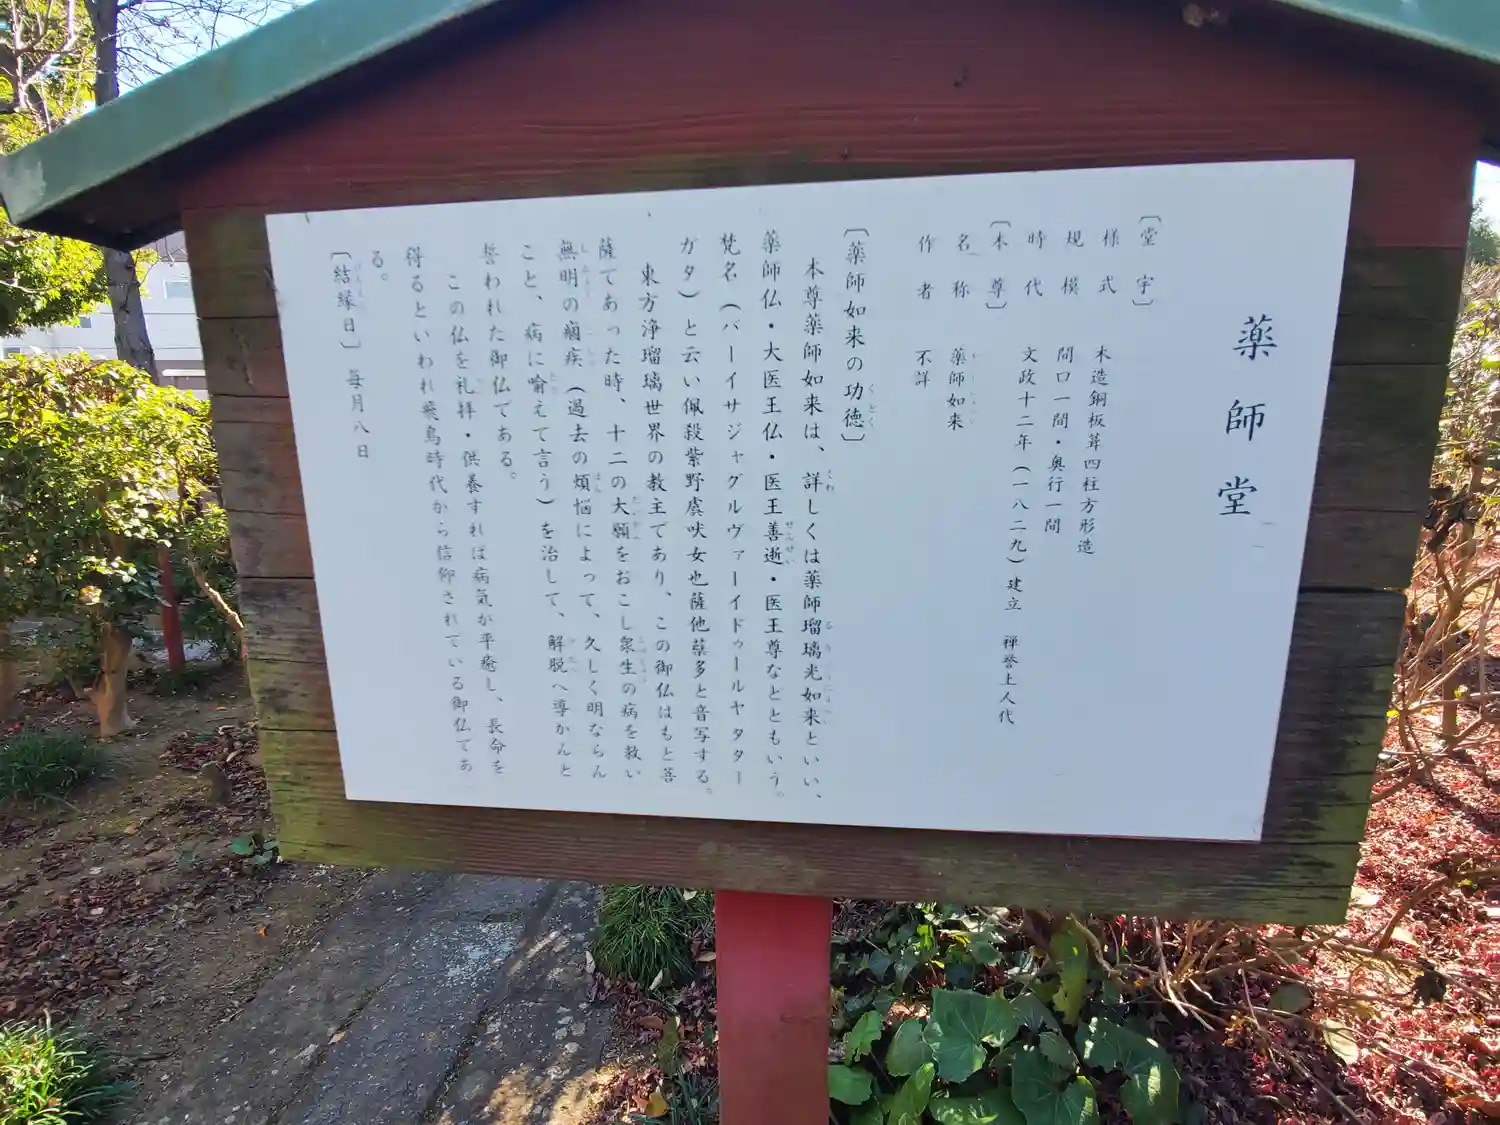 薬師堂
〔堂宇〕
様式 木造銅板葺四柱方形造
規模 間口一間・奥行一間
時代 文政十二年(一八二九)建立 禅誉上人代
〔本尊〕
名称 薬師如来
作者 不詳
〔薬師如来の功徳〕
本尊薬師如来は、詳しくは薬師瑠璃光如来といい、
薬師仏・大医王仏・医王善逝・医王尊などともいう。
梵名(バーイサジャグルヴァーイドゥールヤタター
ガタ)と云い佩殺紫野虞吠女也薩他蘖多と音写する。
東方浄瑠璃世界の教主であり、この御仏はもと菩
薩であった時、十二の大願をおこし衆生の病を救い
無明の痼疾(過去の煩悩によって、久しく明ならん
こと、病に喩えて言う)を治して、解脱へ導かんと
誓われた御仏である。
この仏を礼拝・供養すれば病気が平癒し、長命を
得るといわれ飛鳥時代から信仰されている御仏であ
る。
〔結縁日〕 毎月八日